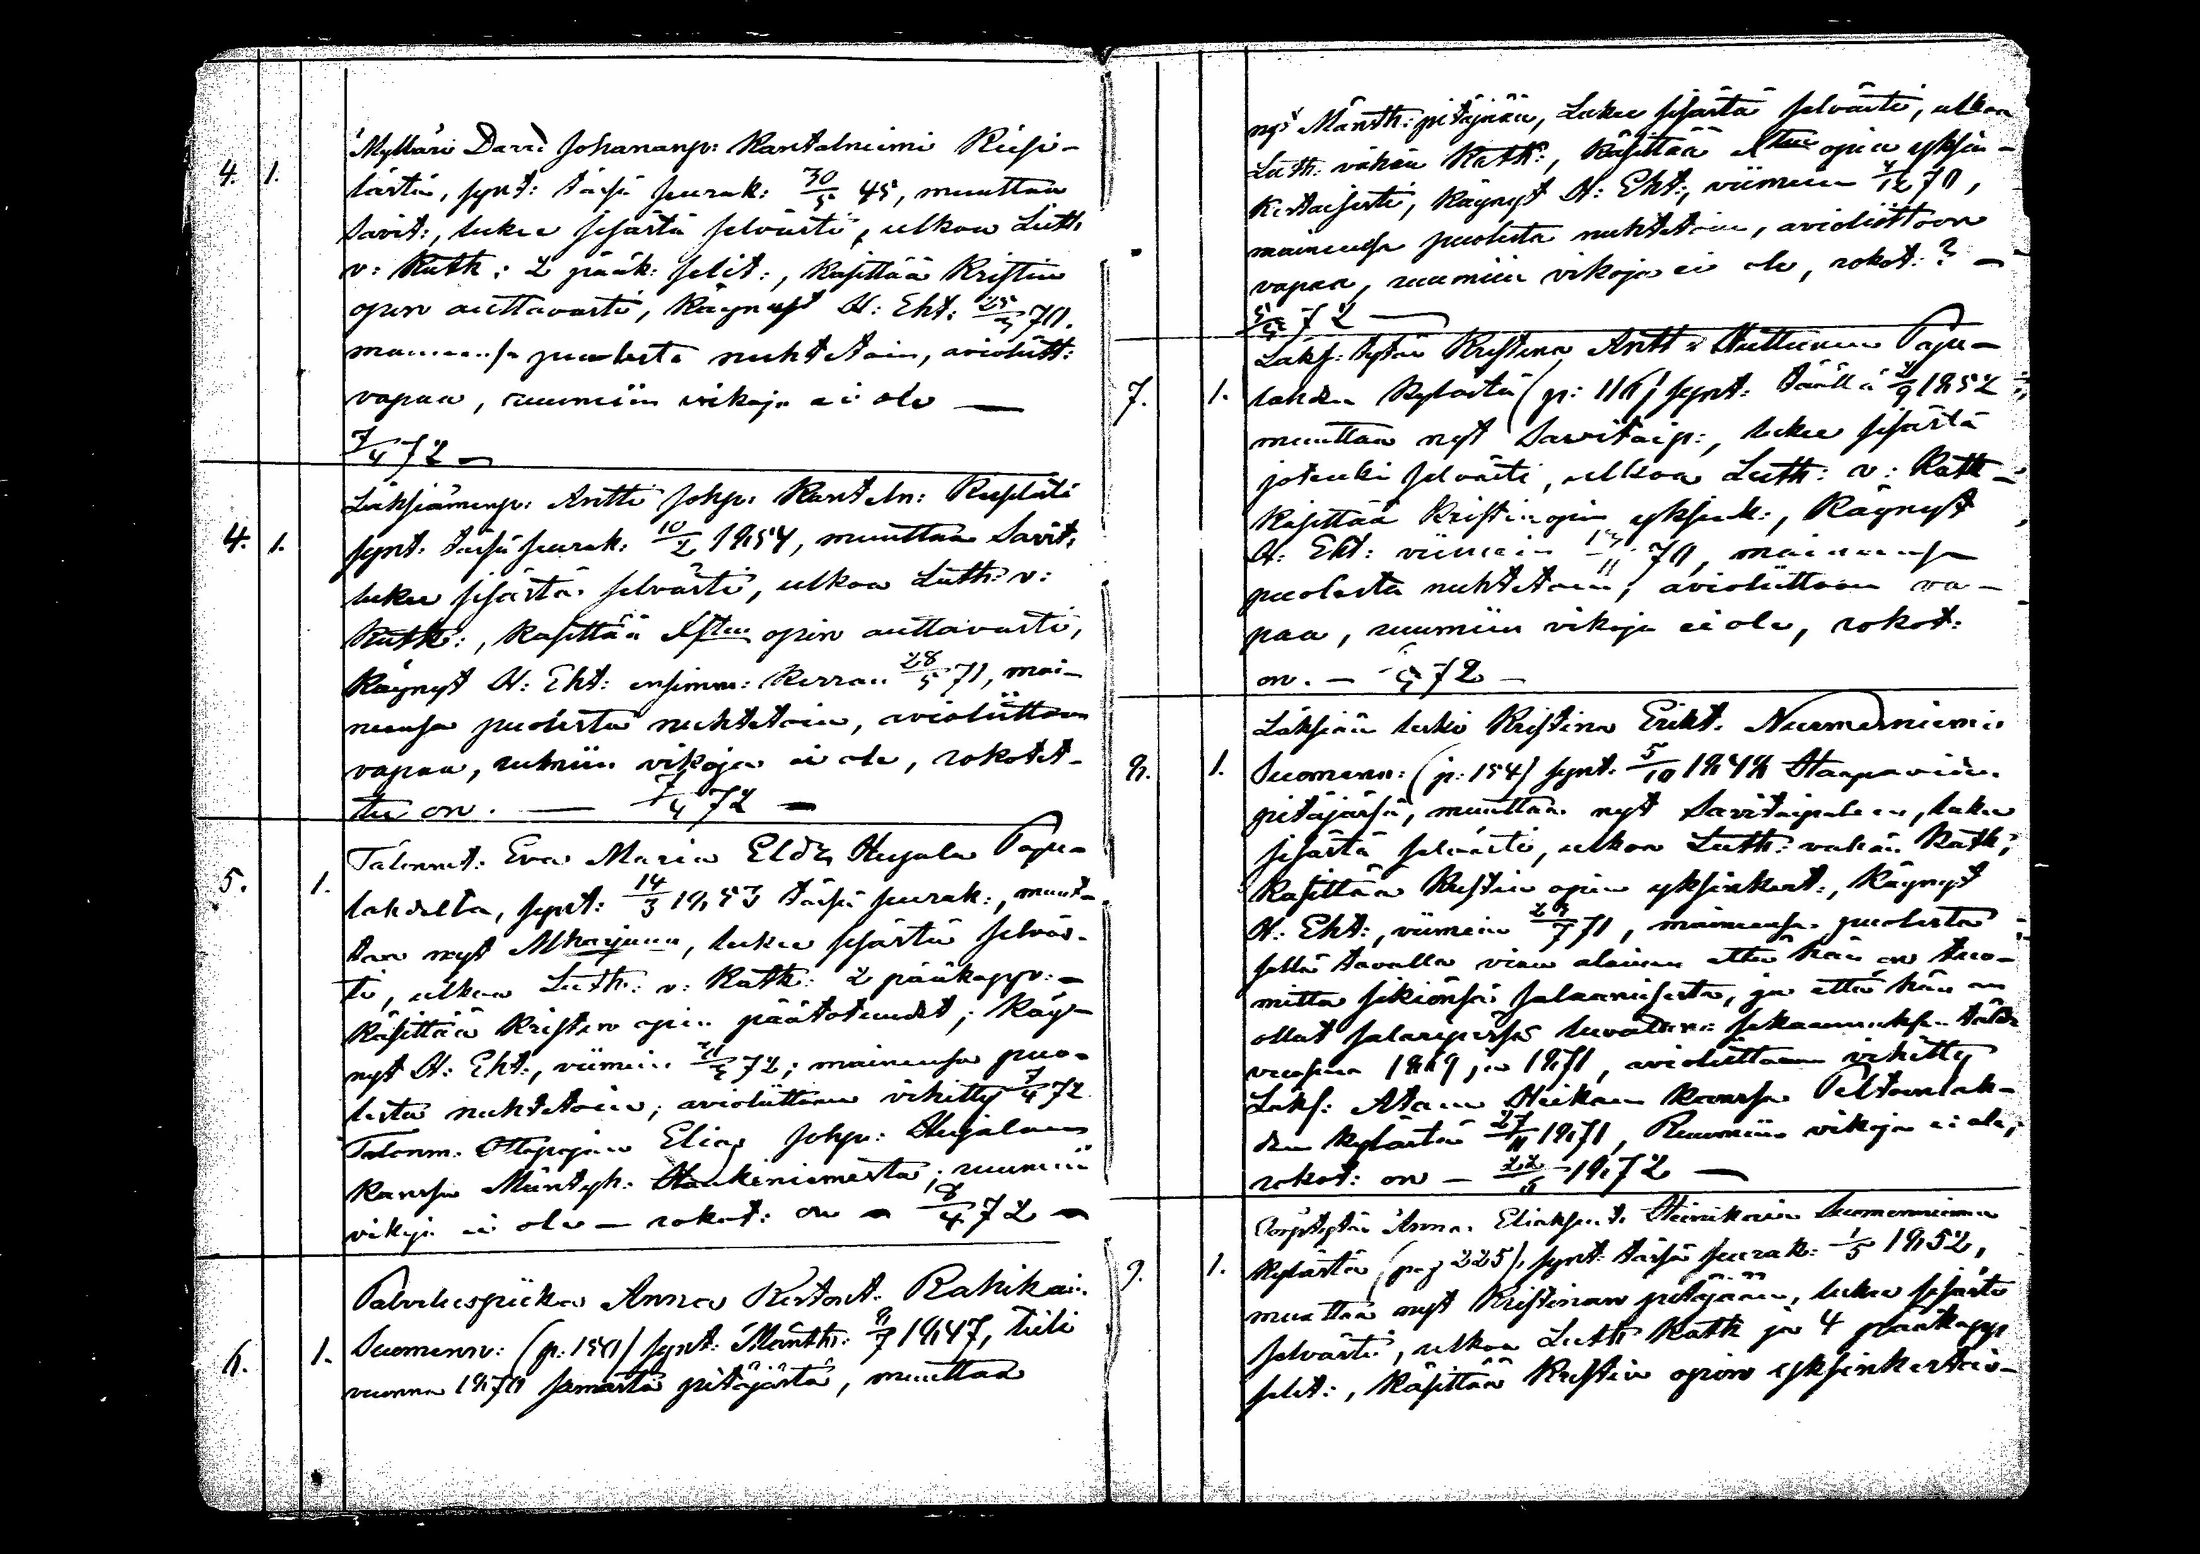 4. 1. Mylläri David Johananp: Kantalniemi Risti-
lästä, synt: täsä seurak: 30/5 45, muuttaa
Savit:, lukee sisästä selvästi, ulkoa Luth.
v: Kath: 2 pääk: selit:, käsittää Kristin
opin auttavasti, käynyt H: Eht: 25/3 70.
maineensa puolesta nuhtetoin, avioliitt:
vapaa, ruumiin vikoja ei ole —
7/4 72 —
4. 1. Läksiämenp: Antti Johp: Kanteln:
synt: täsä seurak: 10/2 1854, muuttaa Savit:
lukee sisästä selvästi, ulkoa Luth: v:
Kath:, käsittää Xstin opin auttavasti,
käynyt H: Eht: ensimm: kerran 28/5 71, mai-
neensa puolesta nuhtetoin, avioliittoon
vapaa, ruumiin vikoja ei ole, rokotet-
tu on. — 7/4 72 —
5. 1. Talonmt: Eva Maria Eldr Hujala Papu-
lahdelta, synt: 14/3 1853 täsä seurak:, muut-
taa nyt, lukee sisästä selväs-
ti, ulkoa Luth: v: Kath: 2 pääkapp: —
käsittää Kristin opin päätotuudet; käy-
nyt H: Eht:, viimein 72; maineensa puo-
lesta nuhtetoin; avioliittoon vihitty 7/4 72
Talonm. Ottopojan Elias Johp: Hujalaen
kanssa Mäntyh: Haukiniemestä; ruumiin
vikoja ei ole — rokot: on — 8/4 72 —
Palveluspiika Anna Kristont. Rahikai.
6. 1. Suomenn: (p: 150) synt: Mänth: 8/7 1847, tuli
vuonna 1870 samasta pitäjästä, muuttaa
nyt Mänth: pitäjään, lukee sisästä selvästi, ulkoa
Luth: vähän Kath:, käsittää Xtin opin yksin-
kertaisesti, käynyt H: Eht:, viimein 4/12 70,
maineensa puolesta nuhtetoin, avioliittoon
vapaa, ruumiin vikoja ei ole, rokot: ? —
72 —
Läks: tytär Kristina Antt: Huttunen Papu-
7. 1. lahden kylästä (p: 116) synt: täällä 1852
muuttaa nyt Savitaip:, lukee sisästä
jotenki selvästi, ulkoa Luth: v: Kath —
käsittää Kristin opin yksink:, käynyt
H: Eht: viimein 70, maineensa
puolesta nuhtetoin, avioliittoon va-
paa, ruumiin vikoja ei ole, rokot:
on. — 72 —
Läksiän leski Kristina Erikt. Nurmelniemi
8. 1. Suomenn: (p: 154) synt. 5/10 1848
pitäjäsä, muuttaa nyt Savitaipaleen, lukee
sisästä selvästi, ulkoa Luth: vähän Kath;
käsittää Kristin opin yksinkert:, käynyt
H: Eht:, viimein 23/7 71, maineensa puolesta
sillä tavalla vian alainen että hän on tuo-
mittu sikiönsä salaamisesta, ja että hän on
ollut salavuoteessa
vuosina 1869 ja 1871, avioliittoon vihitty
Läks: Atam Heikin kanssa Peltoinlah-
den kylästä 27/11 1871, Ruumiin vikoja ei ole,
rokot: on — 1872 —
Torp:tytär Anna Eliaksent. Heinikain Suomenniemen
9. 1. kylästä (pag 225) synt: täsä seurak: 1/5 1852,
muuttaa nyt Kristinan pitäjään, lukee sisästä
selvästi, ulkoa Luth Kath ja 4 pääkapp
selit:, käsittää Kristin opin yksinkertais-